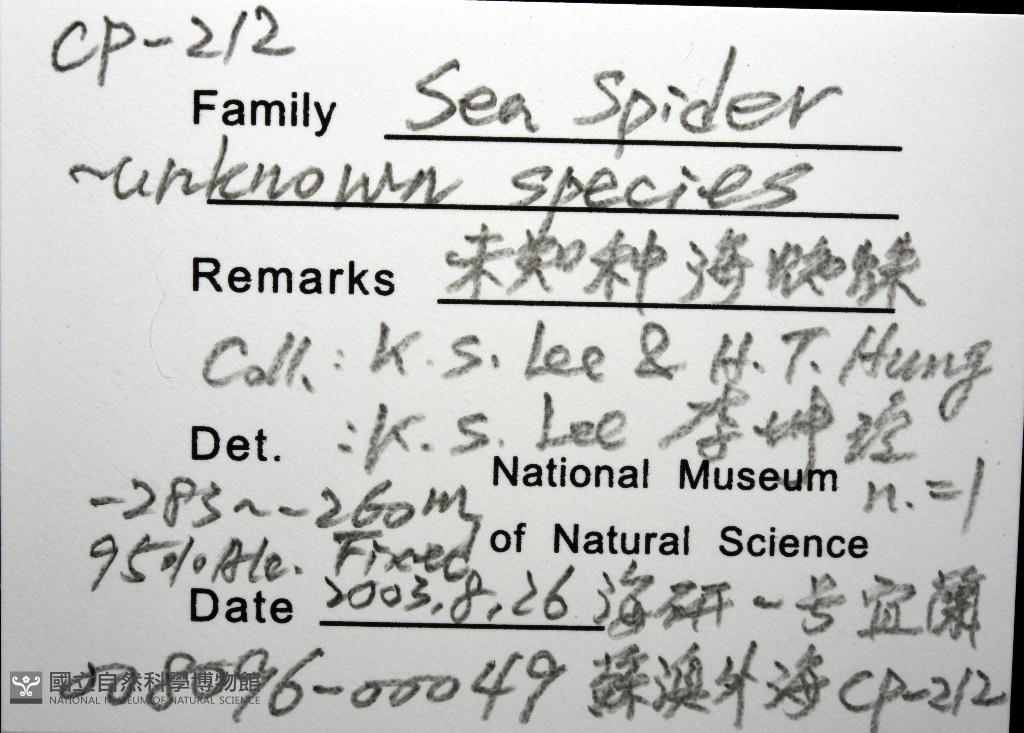 CP-212
Family Sea Spider
~unknown species
Remarks 未知种海蜘蛛
Coll.: K. S. Lee & H. T. Hung
Det. : K. S. Lee 李坤瑄
National Museum n.=1
-283~-260m
95%Alc. Fixed of Natural Science
Date 2003.8.26 海研一号宜蘭
8096-00049 蘇澳外海 CP-212
國立自然科學博物館
NATIONAL MUSEUM OF NATURAL SCIENCE